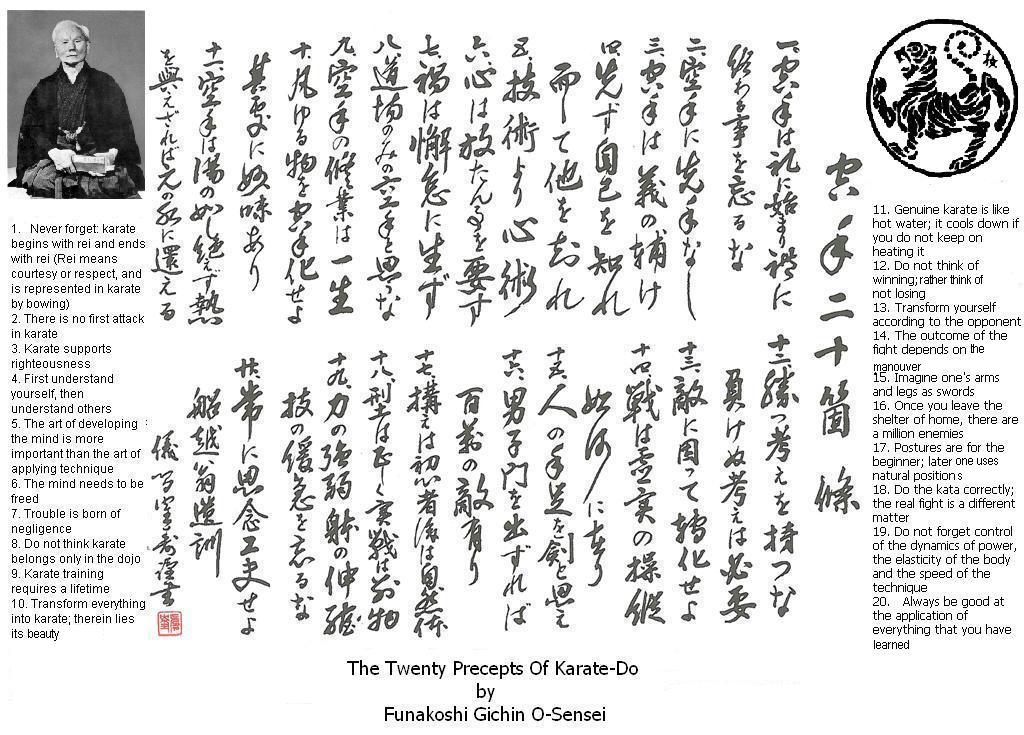 1. Never forget: karate
begins with rei and ends
with rei (Rei means
courtesy or respect, and
is represented in karate
by bowing)
2. There is no first attack
in karate
3. Karate supports
righteousness
4. First understand
yourself, then
understand others
5. The art of developing :
the mind is more
important than the art of
applying technique
6. The mind needs to be
freed
7. Trouble is born of
negligence
8. Do not think karate
belongs only in the dojo
9. Karate training
requires a lifetime
10. Transform everything
into karate; therein lies
its beauty
空手二十箇條
一、空手は礼に始まり禮に
終わる事を忘るな
二、空手に先手なし
三、空手は義の補け
四、先ず自己を知れ
而して他を知れ
五、技術より心術
六、心は放たん事を要す
七、禍は懈怠に生ず
八、道場のみの空手と思うな
九、空手の修業は一生
十、凡ゆる物を空手化せよ
其処に妙味あり
十一、空手は湯の如し絶えず熱
を與えざれば元の水に還える
十二、勝つ考えを持つな
負けぬ考えは必要
十三、敵に因って轉化せよ
十四、戦は虚実の操縦
如何に在り
十五、人の手足を劍と思え
十六、男子門を出ずれば
百萬の敵有り
十七、構えは初心者後は自然体
十八、型は正しく実戦は別物
十九、力の強弱躰の伸縮
技の緩急を忘るな
廿、常に思念工夫せよ
船越翁遺訓
書
11. Genuine karate is like
hot water; it cools down if
you do not keep on
heating it
12. Do not think of
winning; rather think of
not losing
13. Transform yourself
according to the opponent
14. The outcome of the
fight depends on the
manouver
15. Imagine one's arms
and legs as swords
16. Once you leave the
shelter of home, there are
a million enemies
17. Postures are for the
beginner; later one uses
natural positions
18. Do the kata correctly;
the real fight is a different
matter
19. Do not forget control
of the dynamics of power,
the elasticity of the body
and the speed of the
technique
20. Always be good at
the application of
everything that you have
learned
The Twenty Precepts Of Karate-Do
by
Funakoshi Gichin O-Sensei